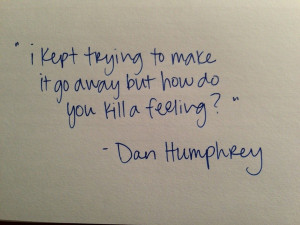 "i kept trying to make
it go away but how do
you kill a feeling?"
- Dan Humphrey